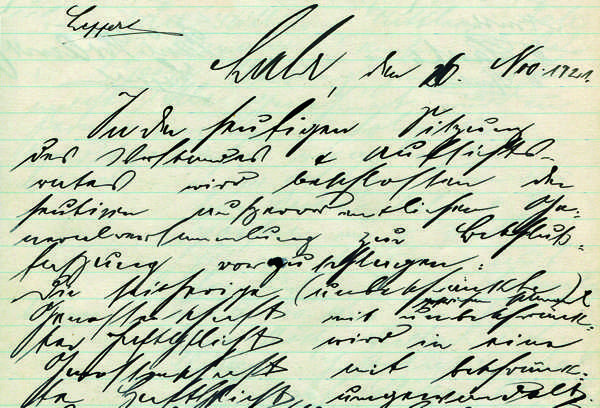 Lahr, den 26. Nov. 1921.
In der heutigen Sitzung
des Vorstandes & Aufsichts-
rates wird beschlossen der
heutigen außerordentlichen Ge-
neralversammlung zur Beschluß-
fassung vorzuschlagen:
Die seitherige (unbeschränkte)
Genossenschaft mit unbeschränk-
ter Haftpflicht wird in eine
Genossenschaft mit beschränk-
te Haftpflicht umgewandelt.